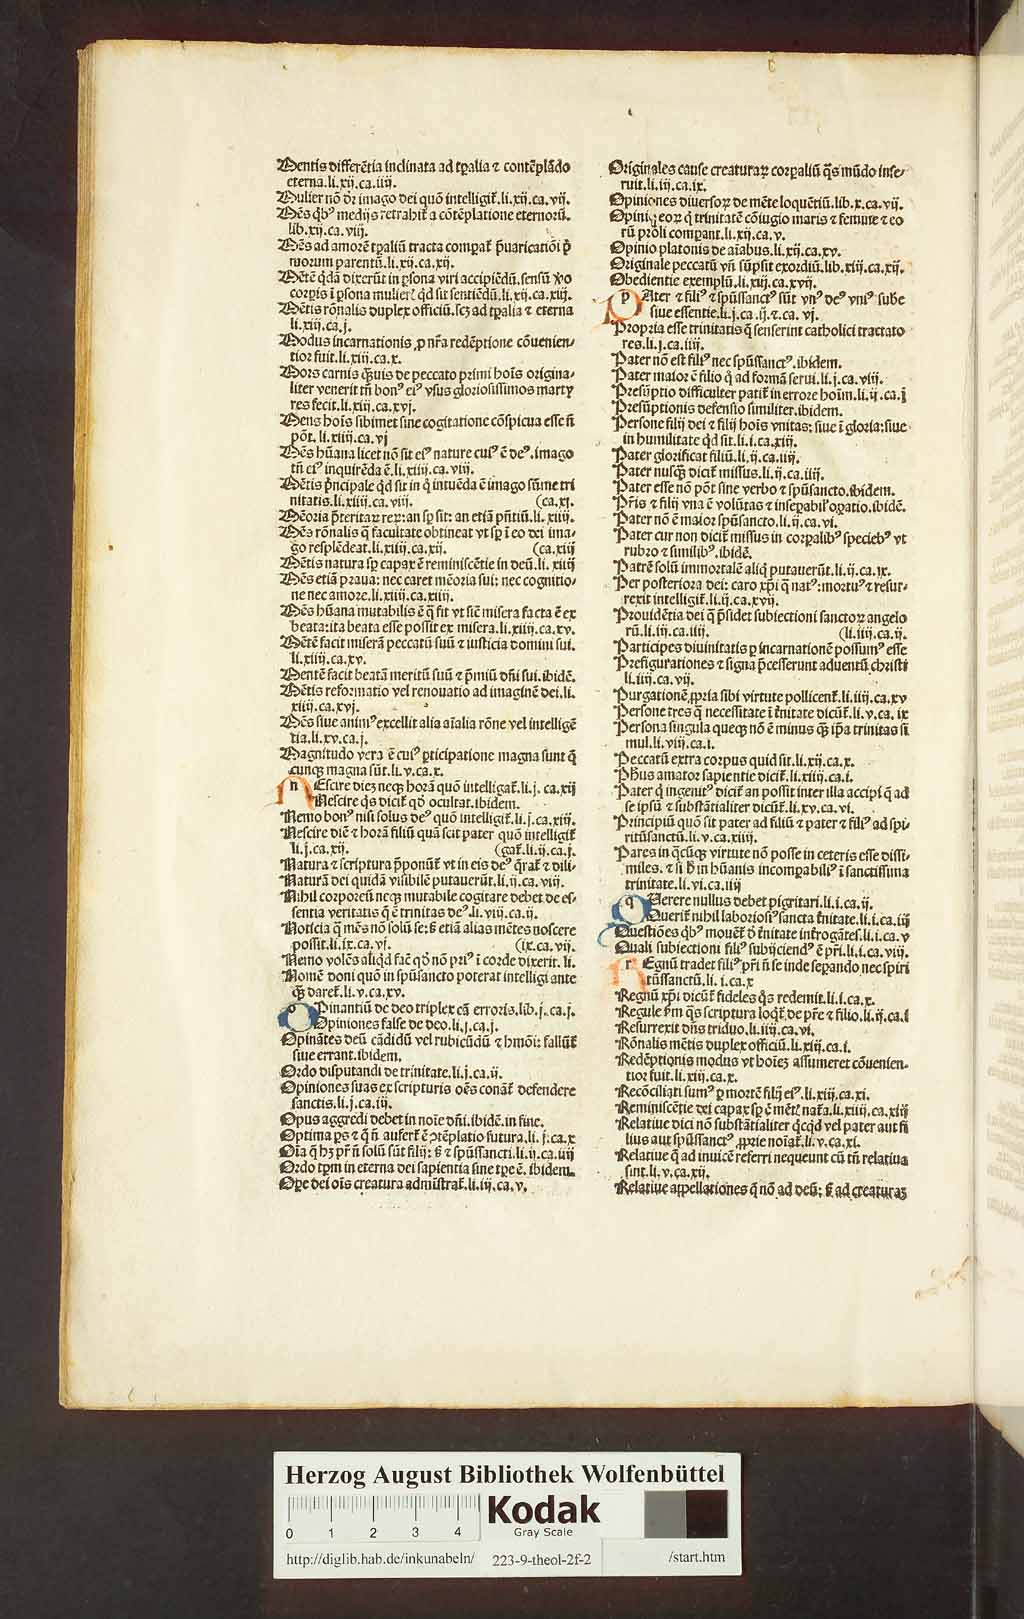 Mentis differētia inclinata ad tꝑalia ⁊ contēplādo
eterna.li.xij.ca.iiij.
Mulier nō dr̄ imago dei quō intelligit̄.li.xij.ca.vij.
Mēs qͥbꝰ medijs retrahit̄ a cōtēplatione eternorū.
lib.xij.ca.viij.
Mēs ad amorē tꝑaliū tracta compat̄ p̄uaricatiōi pͥ
morum parentū.li.xij.ca.xij.
Mētē qͥdā dixerūt in ꝑsona viri accipiēdū.sensū ꝟo
corꝑis ī ꝑsona mulierꝭ qͥd sit sentiēdū.li.xij.ca.xiij.
Mētis rōnalis duplex officiū.scꝫ ad tꝑalia ⁊ eterna
li.xiij.ca.j.
Modus incarnationis ꝓ nr̄a redēptione cōuenien-
tior fuit.li.xiij.ca.x.
Mors carnis qͣuis de peccato primi hoīs origina-
liter venerit tn̄ bonꝰ eiꝰ vsus gloriosissimos martꝭ
res fecit.li.xiij.ca.xvj.
Mens hoīs sibimet sine cogitatione cōspicua esse n̄
pōt.li.xiiij.ca.vj
Mēs hūana licet nō sit eiꝰ nature cuiꝰ ē deꝰ.imago
tn̄ eiꝰ inquirēda ē.li.xiiij.ca.viij.
Mētis pͥncipale qͥd sit in qͦ intuēda ē imago sūme tri
nitatis.li.xiiij.ca.viij. (ca.xj.
Mēoria p̄teritaꝝ reꝝ:an sꝑ sit: an etiā pn̄tiū.li.xiiij.
Mēs rōnalis qͣ facultate obtineat vt sꝑ ī eo dei ima-
go resplēdeat.li.xiiij.ca.xij. (ca.xiij
Mētis natura sꝑ capax ē reminiscētie in deū.li.xiiij
Mēs etiā praua: nec caret mēoria sui: nec cognitio-
ne nec amore.li.xiiij.ca.xiiij.
Mēs hūana mutabilis ē qͣ fit vt sic̄ misera facta ē ex
beata:ita beata esse possit ex misera.li.xiiij.ca.xv.
Mētē facit miserā peccatū suū ⁊ iusticia domini sui.
li.xiiij.ca.xv.
Mentē facit beatā meritū suū ⁊ p̄miū dn̄i sui.ibidē.
Mētis reformatio vel renouatio ad imaginē dei.li.
xiiij.ca.xvj.
Mēs siue animꝰ excellit alia aīalia rōne vel intelligē
tia.li.xv.ca.j.
Magnitudo vera ē cuiꝰ ꝑticipatione magna sunt q̄
cunqꝫ magna sūt.li.v.ca.x.
nEscire dieꝫ neqꝫ horā quō intelligat̄.li.j.ca.xij
Nescire qͥs dicit̄ qd̄ ocultat.ibidem.
Nemo bonꝰ nisi solus deꝰ quō intelligit̄.li.j.ca.xiij.
Nescire diē ⁊ horā filiū quā scit pater quō intelligit̄
li.j.ca.xij. (gat̄.li.ij.ca.j.
Natura ⁊ scriptura p̄ponūt̄ vt in eis deꝰ qͣrat̄ ⁊ dili-
Naturā dei quidā visibilē putauerūt.li.ij.ca.viij.
Nihil corporeū neqꝫ mutabile cogitare debet de es-
sentia veritatis q̄ ē trinitas deꝰ.li.viij.ca.ij.
Noticia qͣ mēs nō solū se:sꝫ etiā alias mētes noscere
possit.li.ix.ca.vj. (ix.ca.vij.
Nemo volēs aliqͥd facē qd̄ nō priꝰ ī corde dixerit.li.
Nomē doni quō in spūsancto poterat intelligi ante
qͣꝫ daret̄.li.v.ca.xv.
oPinantiū de deo triplex cā erroris.lib.j.ca.j.
Opiniones false de deo.li.j.ca.j.
Opinātes deū cādidū vel rubicūdū ⁊ hmōi: fallūt̄
siue errant.ibidem.
Ordo disputandi de trinitate.li.j.ca.ij.
Opiniones suas ex scripturis oēs conāt̄ defendere
sanctis.li.j.ca.iij.
Opus aggredi debet in noīe dn̄i.ibidē.in fine.
Optima ps ⁊ q̄ n̄ aufert̄ ē ꝯtēplatio futura.li.j.ca.x
Oīa q̄ hꝫ pr̄ n̄ solū sūt filij: sꝫ ⁊ spūssancti.li.ij.ca.iiij
Ordo tꝑm in eterna dei sapientia sine tꝑe ē.ibidem.
Ope dei oīs creatura admīstrat̄.li.iij.ca.v.
Originales cause creaturaꝝ corꝑaliū qͣs mūdo inse-
ruit.li.iij.ca.ix.
Opiniones diuersoꝝ de mēte loquētiū.lib.x.ca.vij.
Opinio eoꝝ qͥ trinitatē cōiugio maris ⁊ femine ⁊ eo
rū proli compant.li.xij.ca.v.
Opinio platonis de aīabus.li.xij.ca.xv.
Originale peccatū vn̄ sūpsit exordiū.lib.xiij.ca.xij.
Obedientie exemplū.li.xiij.ca.xvij.
pAter ⁊ filiꝰ ⁊ spūssanctꝰ sūt vnꝰ deꝰ vniꝰ sube
siue essentie.li.j.ca.ij.⁊.ca.vj.
Propria esse trinitatis q̄ senserint catholici tractato
res.li.j.ca.iiij.
Pater nō est filiꝰ nec spūssanctꝰ.ibidem.
Pater maior ē filio qͦ ad formā serui.li.j.ca.viij.
Presūptio difficulter patit̄ in errore hoīm.li.ij.ca.j
Presūptionis defensio similiter.ibidem.
Persone filij dei ⁊ filij hoīs vnitas: siue ī gloria:siue
in humilitate qͥd sit.li.i.ca.xiij.
Pater glorificat filiū.li.ij.ca.iiij.
Pater nusqͣꝫ dicit̄ missus.li.ij.ca.iiij.
Pater esse nō pōt sine verbo ⁊ spūsancto.ibidem.
Pr̄is ⁊ filij vna ē volūtas ⁊ insepabilꝭ oꝑatio.ibidē.
Pater nō ē maior spūsancto.li.ij.ca.vi.
Pater cur non dicit̄ missus in corꝑalibꝰ speciebꝰ vt
rubꝛo ⁊ similibꝰ.ibidē.
Patrē solū immortalē aliqͥ putauerūt.li.ij.ca.ix.
Per posteriora dei: caro xp̄i q̄ natꝰ:mortuꝰ ⁊ resur-
rexit intelligit̄.li.ij.ca.xvij.
Prouidētia dei q̄ p̄sidet subiectioni sanctoꝝ angelo
rū.li.iij.ca.iiij. (li.iiij.ca.ij.
Participes diuinitatis ꝑ incarnationē possumꝰ esse
Prefigurationes ⁊ signa p̄cesserunt aduentū christi
li.iiij.ca.vij.
Purgationē ꝓpria sibi virtute pollicent̄.li.iiij.ca.xv
Persone tres qͣ necessitate ī trinitate dicūt̄.li.v.ca.ix
Persona singula queqꝫ nō ē minus qͣꝫ ip̄a trinitas si
mul.li.viij.ca.i.
Peccatū extra corpus quid sit.li.xij.ca.x.
Ph̄us amator sapientie dicit̄.li.xiiij.ca.i.
Pater qͥ ingenitꝰ dicit̄ an possit inter illa accipi q̄ ad
se ipsū ⁊ substātialiter dicūt̄.li.xv.ca.vi.
Principiū quō sit pater ad filiū ⁊ pater ⁊ filiꝰ ad spi-
ritūsanctū.li.v.ca.xiiij.
Pares in qͣcūqꝫ virtute nō posse in ceteris esse dissi-
miles. ⁊ si h̄ in hūanis incomprabilꝭ ī sanctissima
trinitate.li.vi.ca.iiij
qUerere nullus debet pigritari.li.i.ca.ij.
Querit̄ nihil laboriosiꝰ sancta trinitate.li.i.ca.iij
Questiōes qͥbꝰ mouēt̄ d̄ trinitate int̄rogātes.li.i.ca.v
Quali subiectioni filiꝰ subijciendꝰ ē pr̄i.li.i.ca.viij.
rEgnū tradet filiꝰ pr̄i n̄ se inde sepando nec spiri
tūssanctū.li.i.ca.x
Regnū xp̄i dicūt̄ fideles qͦs redemit.li.i.ca.x.
Regule sm̄ quas scriptura loqͥt̄ de pr̄e ⁊ filio.li.ij.ca.i
Resurrexit dn̄s triduo.li.iiij.ca.vi.
Rōnalis mētis duplex officiū.li.xiij.ca.i.
Redēptionis modus vt hoīeꝫ assumeret cōuenien-
tior fuit.li.xiij.ca.x.
Recōciliati sumꝰ ꝑ mortē filij eiꝰ.li.xiij.ca.xi.
Reminiscētie dei capax sꝑ ē mētꝭ natr̄a.li.xiiij.ca.xiij
Relatiue dici nō substātialiter qͥcqͥd vel pater aut fi
lius aut spūssanctꝰ ꝓprie noīat̄.li.v.ca.xi.
Relatiue q̄ ad inuicē referri nequeunt cū tn̄ relatiua
sint.li.v.ca.xij.
Relatiue appellationes q̄ nō ad deū: sꝫ ad creaturaꝫ
Herzog August Bibliothek Wolfenbüttel
0 1 2 3 4
Kodak
Gray Scale
http://diglib.hab.de/inkunabeln/ 223-9-theol-2f-2 /start.htm